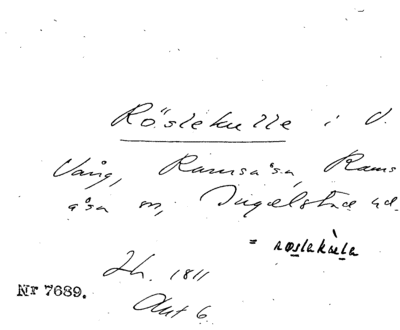 Röslekulle i V.
Vång, Ramsåsa, Rams
åsa sn, Ingelstad hd.
= røslekùle
Lh. 1811
Akt 6
Nr 7689.